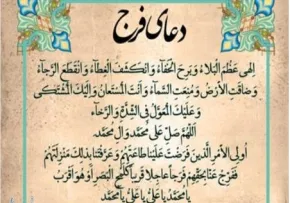 دعای فرج
اِلٰهی عَظُمَ الْبَلاٰءُ وَ بَرِحَ الْخَفٰاءُ وَ انْکَشَفَ الْغِطٰاءُ وَ انْقَطَعَ الرَّجٰاءُ
وَ ضٰاقَتِ الْاَرْضُ وَ مُنِعَتِ السَّمٰاءُ وَ اَنْتَ الْمُسْتَعٰانُ وَ اِلَیْکَ الْمُشْتَکیٰ
وَ عَلَیْکَ الْمُعَوَّلُ فِی الشِّدَّةِ وَ الرَّخٰاءِ
اَللّٰهُمَّ صَلِّ عَلیٰ مُحَمَّدٍ وَ الِ مُحَمَّدٍ
اُولِی الْاَمْرِ الَّذینَ فَرَضْتَ عَلَیْنٰا طٰاعَتَهُمْ وَ عَرَّفْتَنٰا بِذٰلِکَ مَنْزِلَتَهُمْ
فَفَرِّجْ عَنّٰا بِحَقِّهِمْ فَرَجاً عٰاجِلاً قَریباً کَلَمْحِ الْبَصَرِ اَوْ هُوَ اَقْرَبُ
یٰا مُحَمَّدُ یٰا عَلِیُّ یٰا عَلِیُّ یٰا مُحَمَّدُ